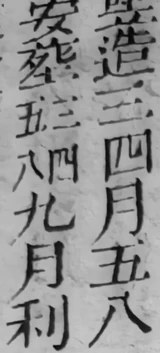 造三四月五八
安葬三四五八九月利